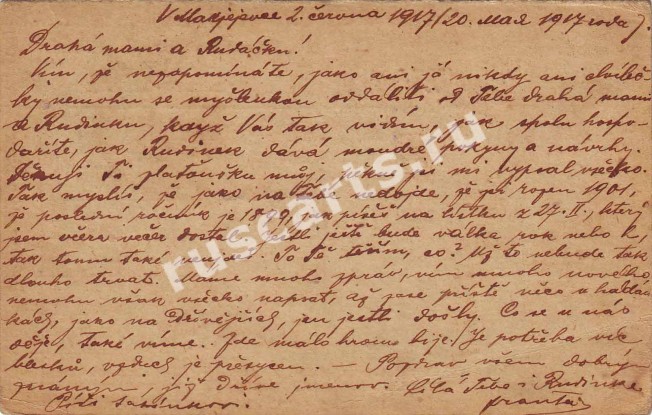 V Makjejevce 2. června 1917 (20. мая 1917 года).
Drahá mami a Rudáčku!
Vím, že nezapomínáte, jako ani já nikdy ani chvileč-
ky nemohu se myšlenkou oddáliti od Tebe drahá mami
a Rudinku, když Vás tak vidím, jak spolu hospo-
daříte, jak Rudinek dává moudré pokyny a návrhy.
Děkuji Ti můj, že jsi mi vypsal všecko.
Tak myslíš, že jako na nedojde, že jsi rozen 1901,
že poslední ročník je 1899, jak píšeš na lístku z 27. II., který
jsem včera večer dostal. ještě bude válka rok nebo 2,
tak tomu také To Tě těším, co? Už to nebude tak
dlouho trvat. Máme mnoho zpráv, vím mnoho nového,
nemohu však všecko napsat, až zase příště něco v hádan-
kách, jako na dřívějších, jen jestli došly. Co se u nás
děje, také víme. Zde málo hromů bije. Je potřeba víc
blesků, vzduch je přesycen. — Pozdrav všem dobrým
známým, jmenov. Líbá Tebe i Rudinka
Piští Franta
rusearts.ru